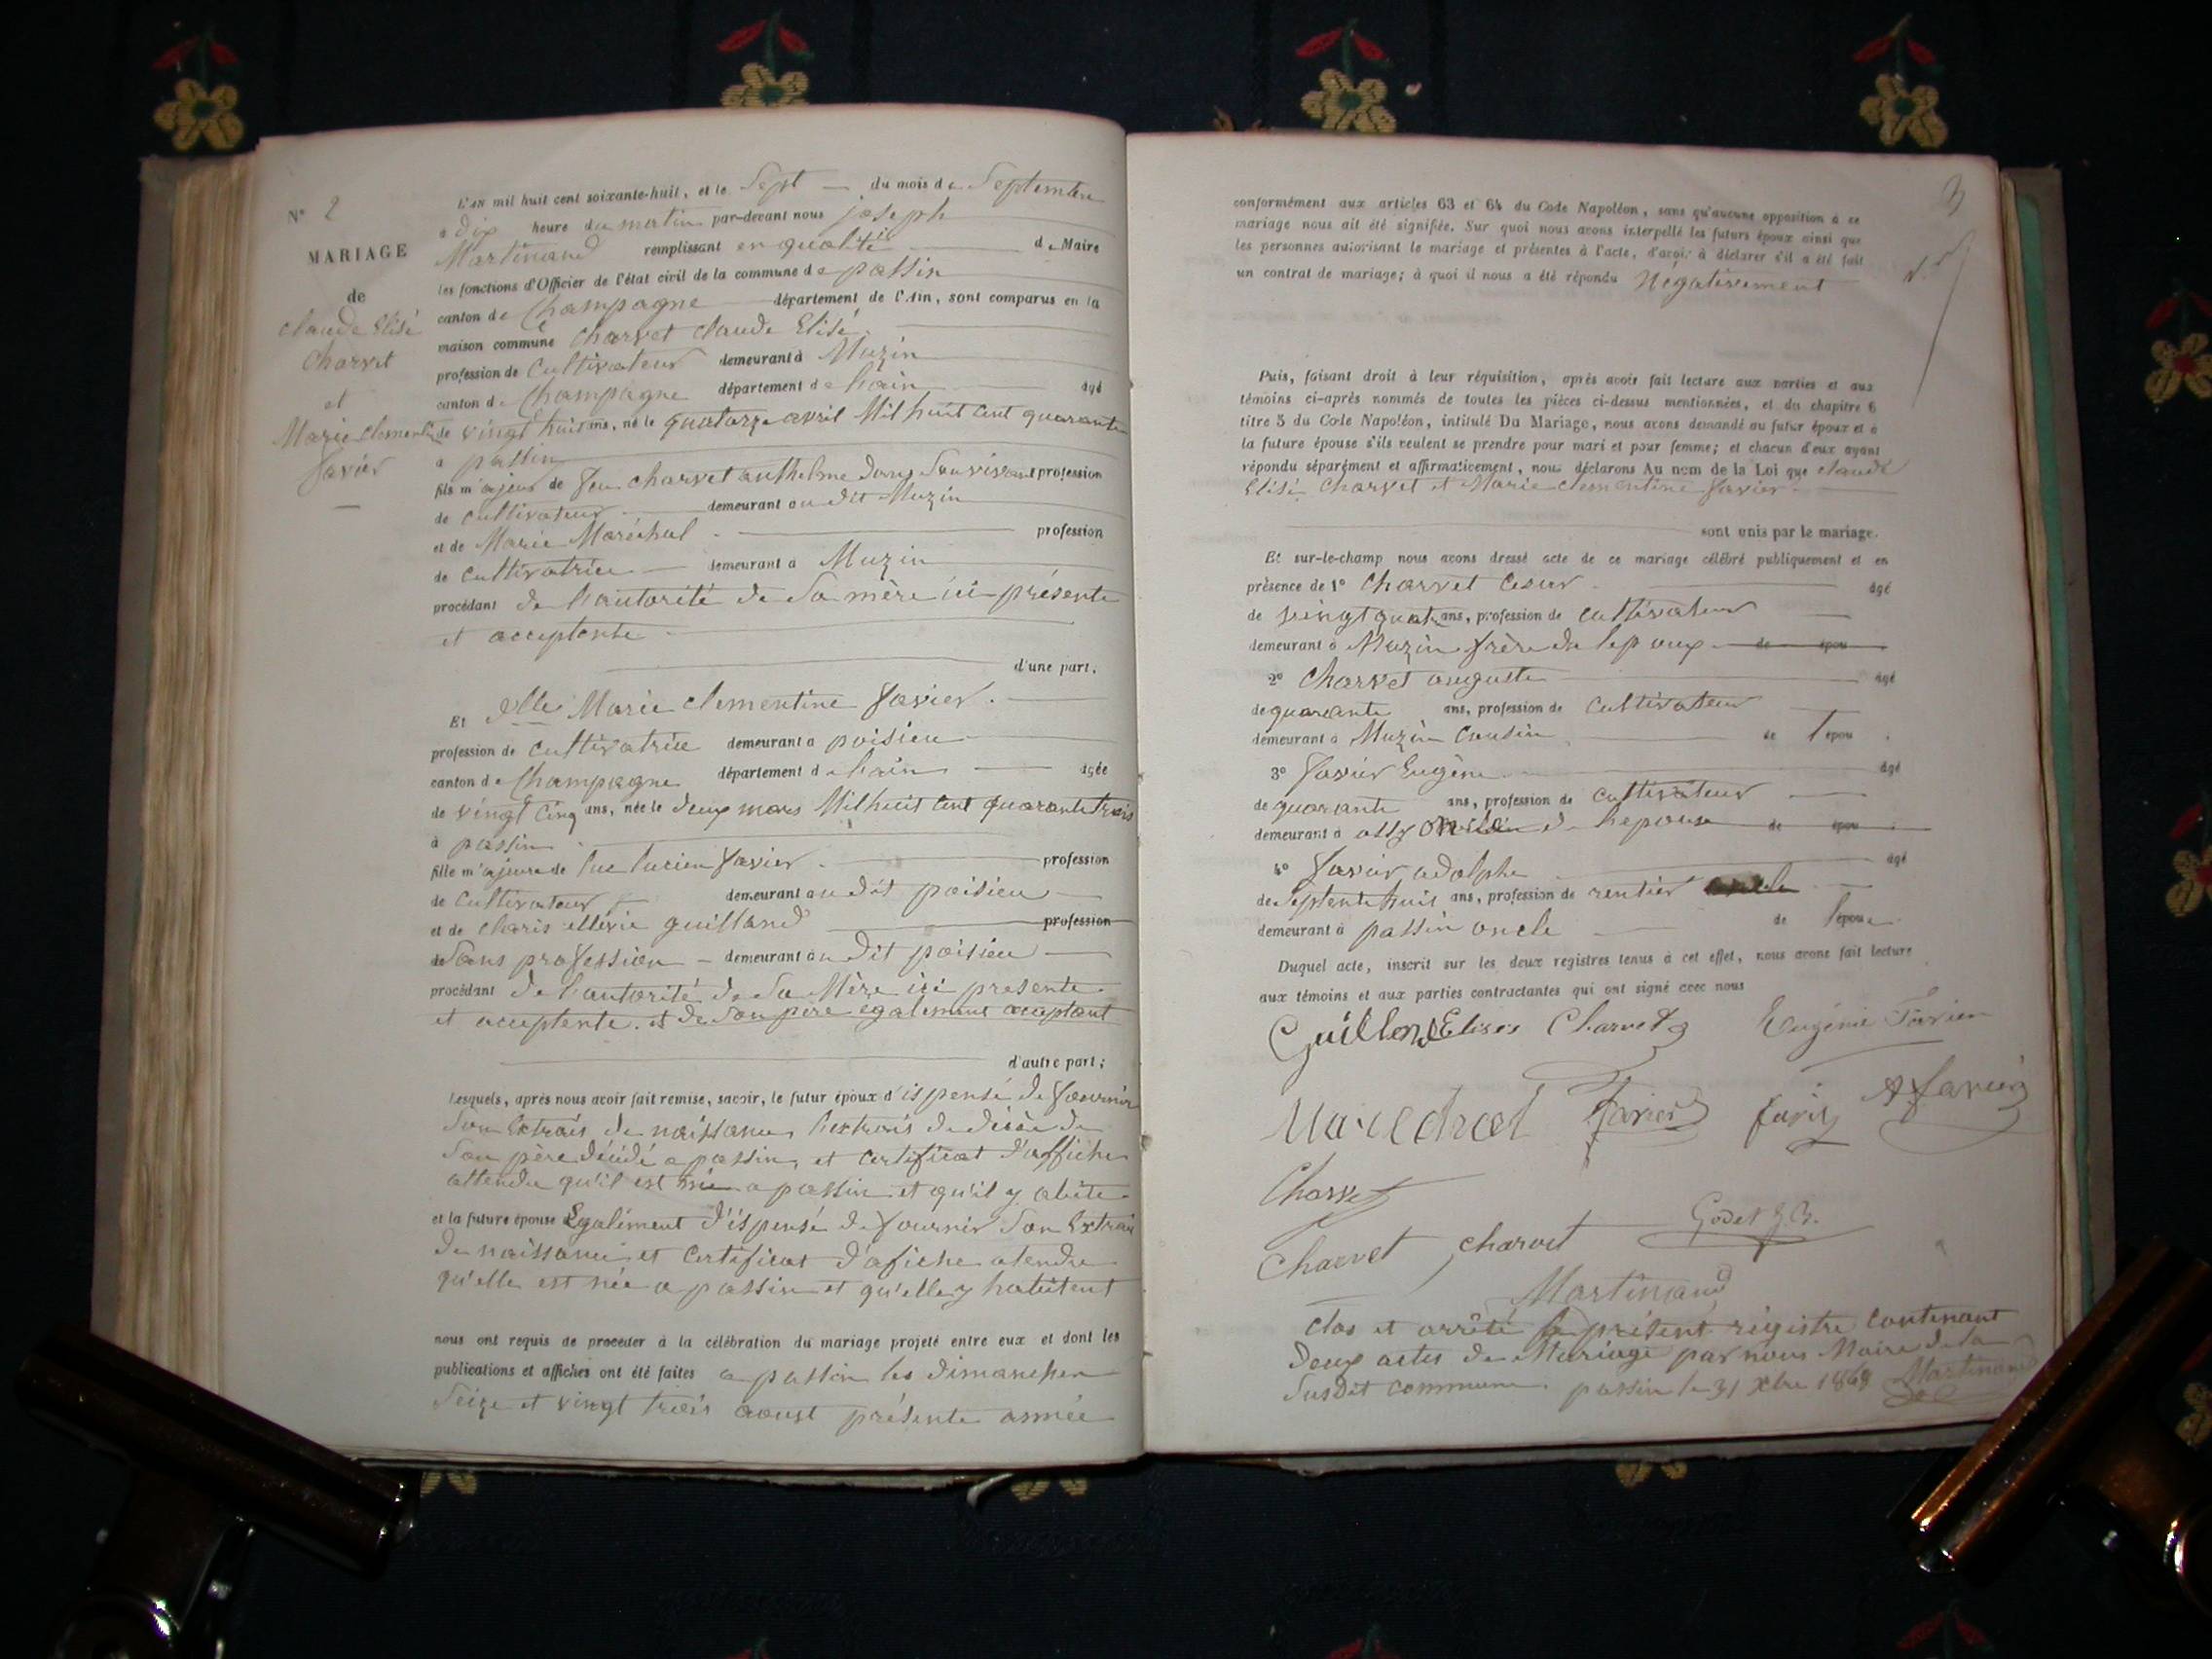 N° 2
MARIAGE
de
Claude Elisé
Charvet
et
Marie Clementine
Favier
L'AN mil huit cent soixante-huit, et le Sept du mois de Septembre
à dix heure du matin par-devant nous joseph
Martinand remplissant en qualité de Maire
les fonctions d'Officier de l'état civil de la commune de passin
canton de Champagne département de l'Ain, sont comparus en la
maison commune Charvet Claude Elisé
profession de Cultivateur demeurant à Muzin
canton de Champagne département de l'ain âgé
de vingt huit ans, né le quatorze avril Mil huit cent quarante
à passin
fils majeur de feu Charvet anthelme dans Son vivant profession
de cultivateur demeurant au dit Muzin
et de Marie Maréchal profession
de cultivatrice demeurant à Muzin
procédant de l'autorité de Sa mère ici présente
et acceptente
d'une part.
Et dlle Marie Clementine Favier
profession de cultivatrice demeurant à poisieu
canton de Champagne département de l'ain âgée
de vingt Cinq ans, née le deux mars Mil huit Cent quarante trois
à passin
fille majeure de luc lucien Favier profession
de Cultivateur demeurant au dit poisieu
et de guilland profession
de Sans profession demeurant au Dit poisieu
procédant de l'autorité de Sa Mère ici presente
et acceptente et de Son père également acceptant
d'autre part;
Lesquels, après nous avoir fait remise, savoir, le futur époux d'ispensé de fournir
Son Extrais de naissance, l'extrais de décès de
Son père décédé a passin, et certificat d'affiche
attendu qu'il est née a passin et qu'il y abite
et la future épouse Egalement d'ispensé de fournir Son Extrai
de naissance et Certificat d'afiche atendu
qu'elle est née a passin et qu'elle y habitent
nous ont requis de procéder à la célébration du mariage projeté entre eux et dont les
publications et affiches ont été faites a passin les dimanches
Seize et vingt trois aoust présente année
3
conformément aux articles 63 et 64 du Code Napoléon, sans qu'aucune opposition à ce
mariage nous ait été signifiée. Sur quoi nous avons interpellé les futurs époux ainsi que
les personnes autorisant le mariage et présentes à l'acte, d'avoir à déclarer s'il a été fait
un contrat de mariage; à quoi il nous a été répondu Négativement
Puis, faisant droit à leur réquisition, après avoir fait lecture aux parties et aux
témoins ci-après nommés de toutes les pièces ci-dessus mentionnées, et du chapitre 6
titre 5 du Code Napoléon, intitulé Du Mariage, nous avons demandé au futur époux et à
la future épouse s'ils veulent se prendre pour mari et pour femme; et chacun d'eux ayant
répondu séparément et affirmativement, nous déclarons Au nom de la Loi que Claude
Elisé Charvet et Marie Clementine Favier
sont unis par le mariage.
Et sur-le-champ nous avons dressé acte de ce mariage célébré publiquement et en
présence de 1° Charvet Cesar âgé
de vingt quatre ans, profession de cultivateur
demeurant à Muzin frère de l'epoux de épou
2° Charvet auguste âgé
de quarante ans, profession de Cultivateur
demeurant à Muzin Cousin de l'épou
3° Favier Eugène âgé
de quarante ans, profession de cultivateur
demeurant à de l'epouse de épou
4° Favier adolphe âgé
de Septente huit ans, profession de rentier
demeurant à passin oncle de l'épouse
Duquel acte, inscrit sur les deux registres tenus à cet effet, nous avons fait lecture
aux témoins et aux parties contractantes qui ont signé avec nous
Guilland Elisée Charvet Eugénie Favier
Marechal Favier Favier A Favier
Charvet
Charvet Charvet Godet J B.
Martinand
Clos et arrêté le présent régistre contenant
Deux actes de Mariage par nous Maire de la
Susdit commune. passin le 31 Xbre 1868 Martinand